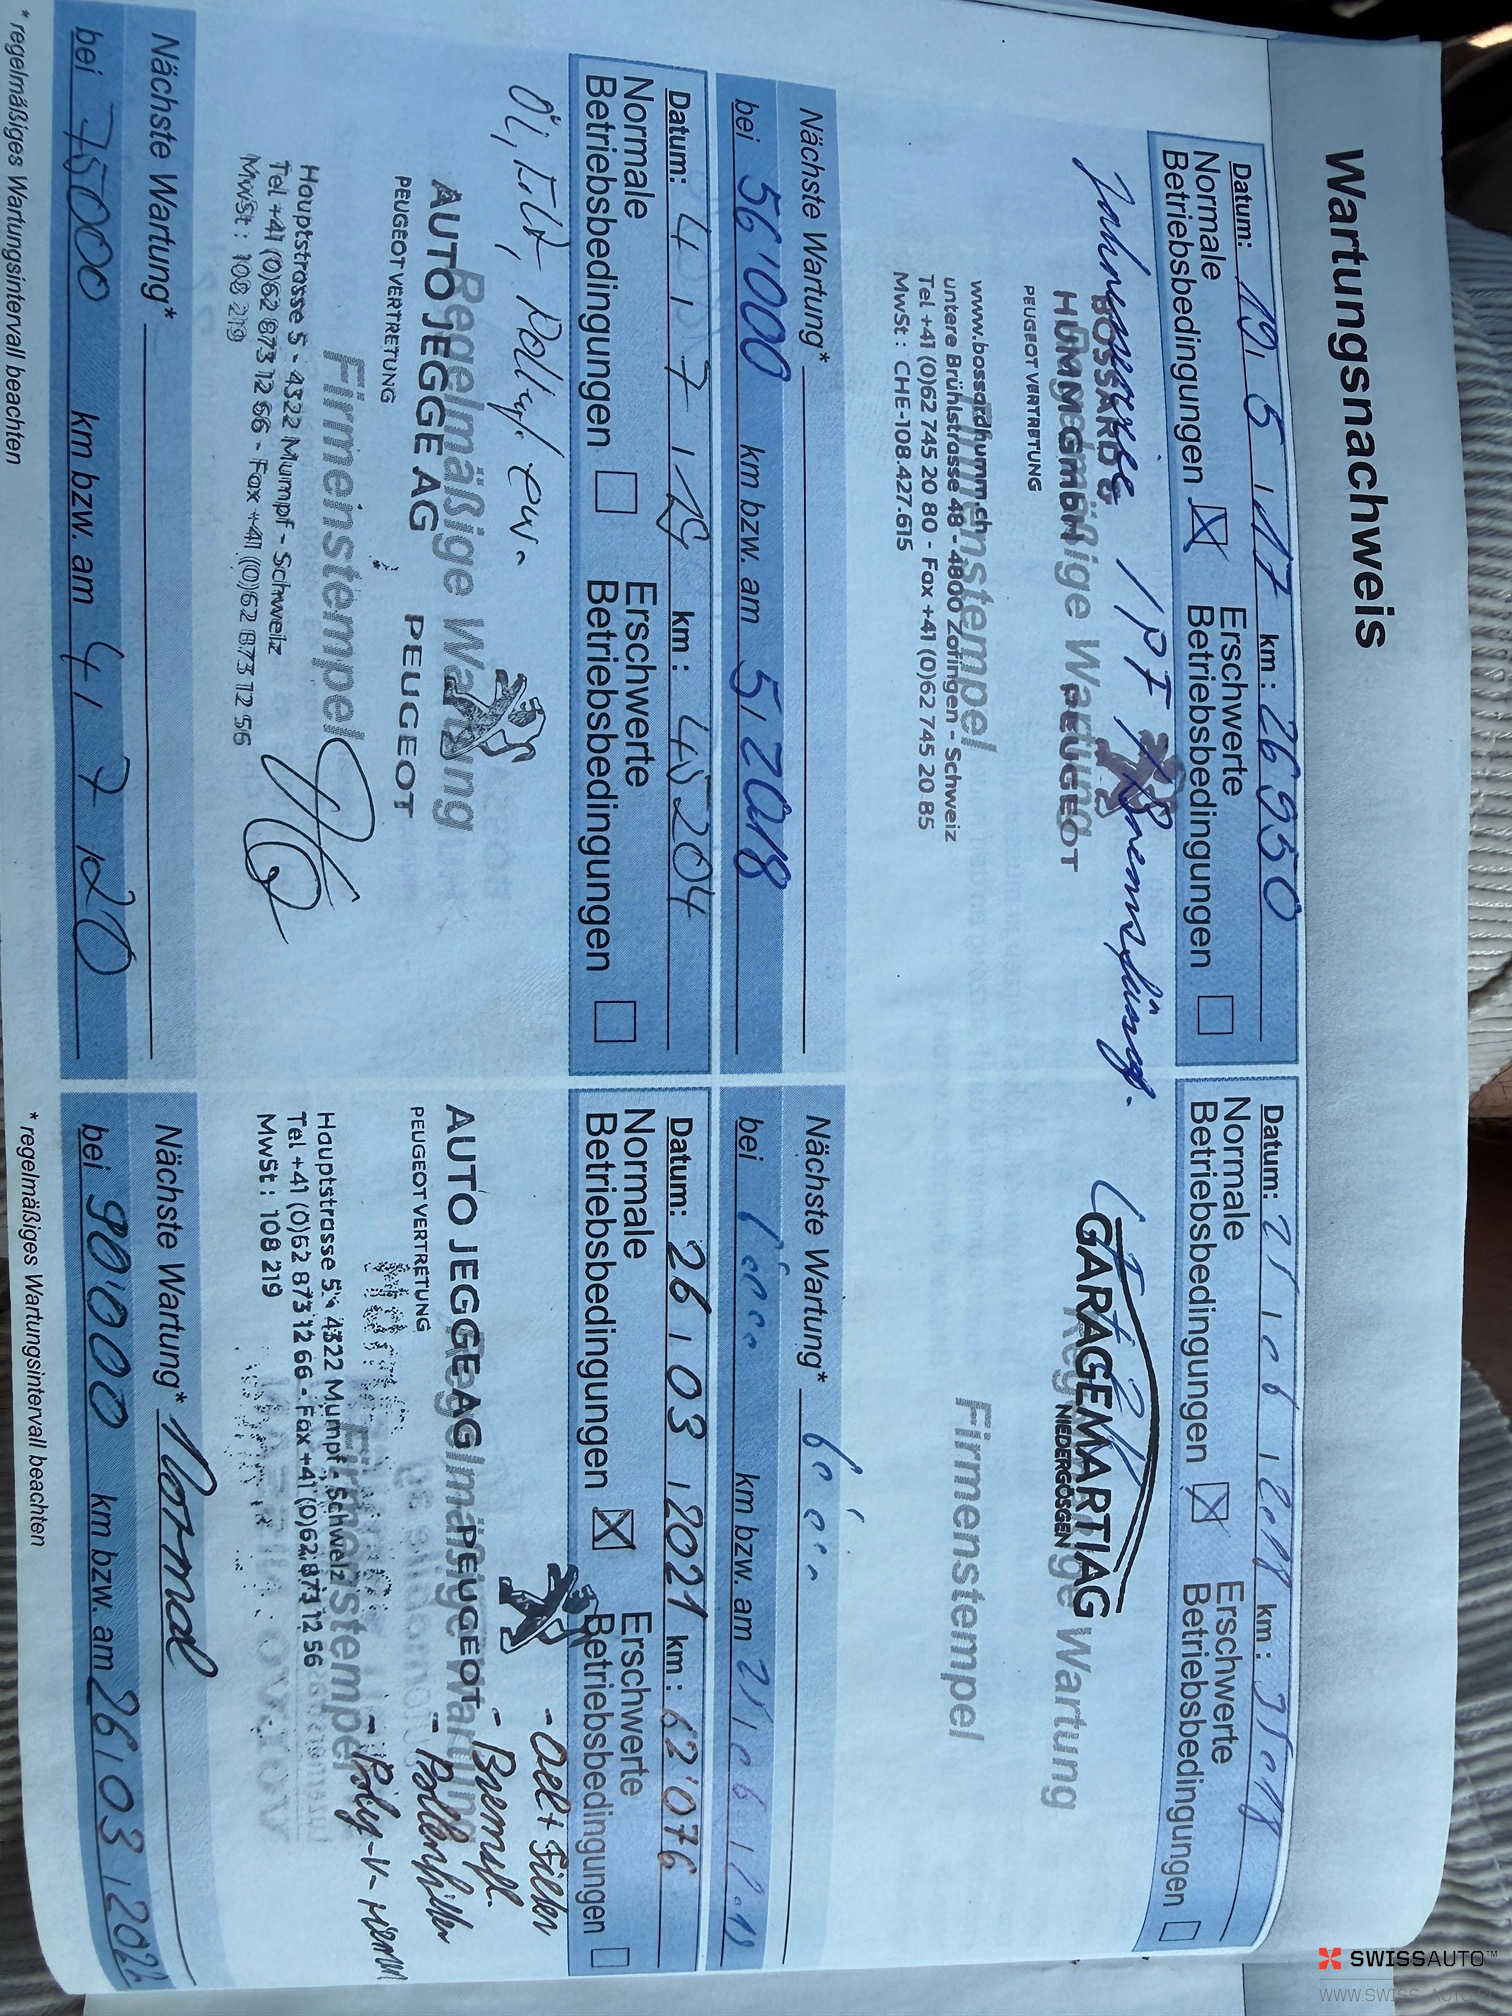 Wartungsnachweis
Datum: 19.5.17 km: 26950
Normale Betriebsbedingungen ☒ Erschwerte Betriebsbedingungen ☐
Regelmäßige Wartung
BOSSARD &
HUMM GmbH PEUGEOT
PEUGEOT VERTRETUNG
Firmenstempel
www.bossardhumm.ch
untere Brühlstrasse 48 - 4800 Zofingen - Schweiz
Tel +41 (0)62 745 20 80 - Fax +41 (0)62 745 20 85
MwSt : CHE-108.427.615
Nächste Wartung*
bei 56'000 km bzw. am 5.2018
Datum: 4.7.19 km: 45204
Normale Betriebsbedingungen ☐ Erschwerte Betriebsbedingungen ☐
Regelmäßige Wartung
AUTO JEGGE AG PEUGEOT
PEUGEOT VERTRETUNG
Firmenstempel
Hauptstrasse 5 - 4322 Mumpf - Schweiz
Tel +41 (0)62 873 12 66 - Fax +41 (0)62 873 12 56
MwSt : 108 219
Nächste Wartung*
bei 75000 km bzw. am 4.7.20
* regelmäßiges Wartungsintervall beachten
Datum: km:
Normale Betriebsbedingungen ☒ Erschwerte Betriebsbedingungen ☐
Regelmäßige Wartung
GARAGE MARTI AG
NIEDERGÖSGEN
Firmenstempel
Nächste Wartung*
bei km bzw. am
Datum: 26.03.2021 km: 62'076
Normale Betriebsbedingungen ☒ Erschwerte Betriebsbedingungen ☐
- Oel + Filter
- Bremsfl.
- Pollenfilter
- Poly-V-riemen
Regelmäßige Wartung
AUTO JEGGE AG PEUGEOT
PEUGEOT VERTRETUNG
Firmenstempel
Hauptstrasse 5 - 4322 Mumpf - Schweiz
Tel +41 (0)62 873 12 66 - Fax +41 (0)62 873 12 56
MwSt : 108 219
Nächste Wartung* Normal
bei 90'000 km bzw. am 26.03.2022
* regelmäßiges Wartungsintervall beachten
SWISSAUTO™